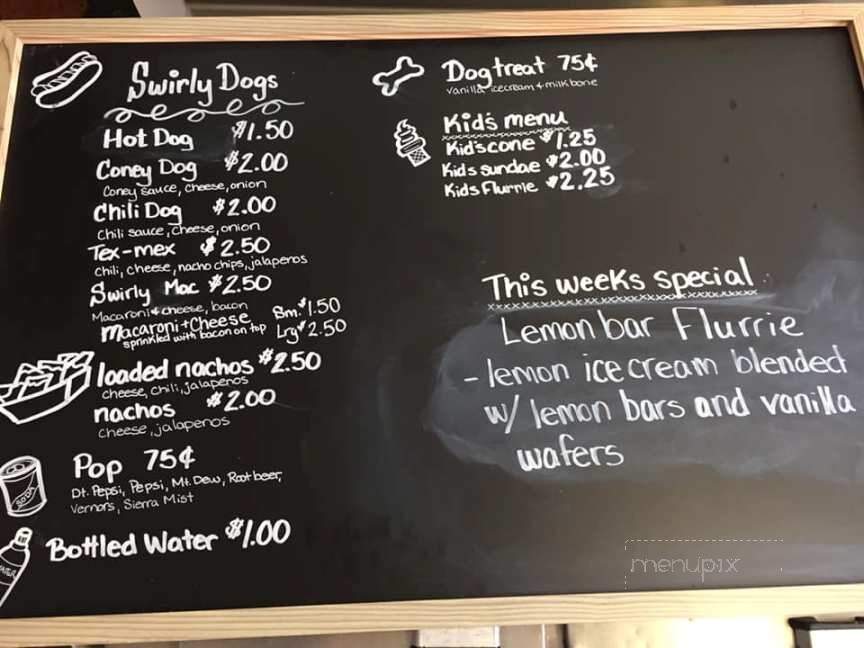 Swirly Dogs
Hot Dog $1.50
Coney Dog $2.00
Coney sauce, cheese, onion
Chili Dog $2.00
Chili sauce, cheese, onion
Tex-mex $2.50
Chili, cheese, nacho chips, jalapenos
Swirly Mac $2.50
Macaroni & cheese, bacon
Macaroni + Cheese Sm. $1.50
sprinkled with bacon on top Lrg $2.50
loaded nachos $2.50
cheese, chili, jalapenos
nachos $2.00
cheese, jalapenos
SODA
Pop 75¢
Dt. Pepsi, Pepsi, Mt. Dew, Root beer,
Vernors, Sierra Mist
Bottled Water $1.00
Dog treat 75¢
vanilla icecream + milkbone
Kid's menu
Kid's cone $1.25
Kids sundae $2.00
Kids Flurrie $2.25
This weeks special
Lemon bar Flurrie
- lemon ice cream blended
w/ lemon bars and vanilla
wafers
menupix